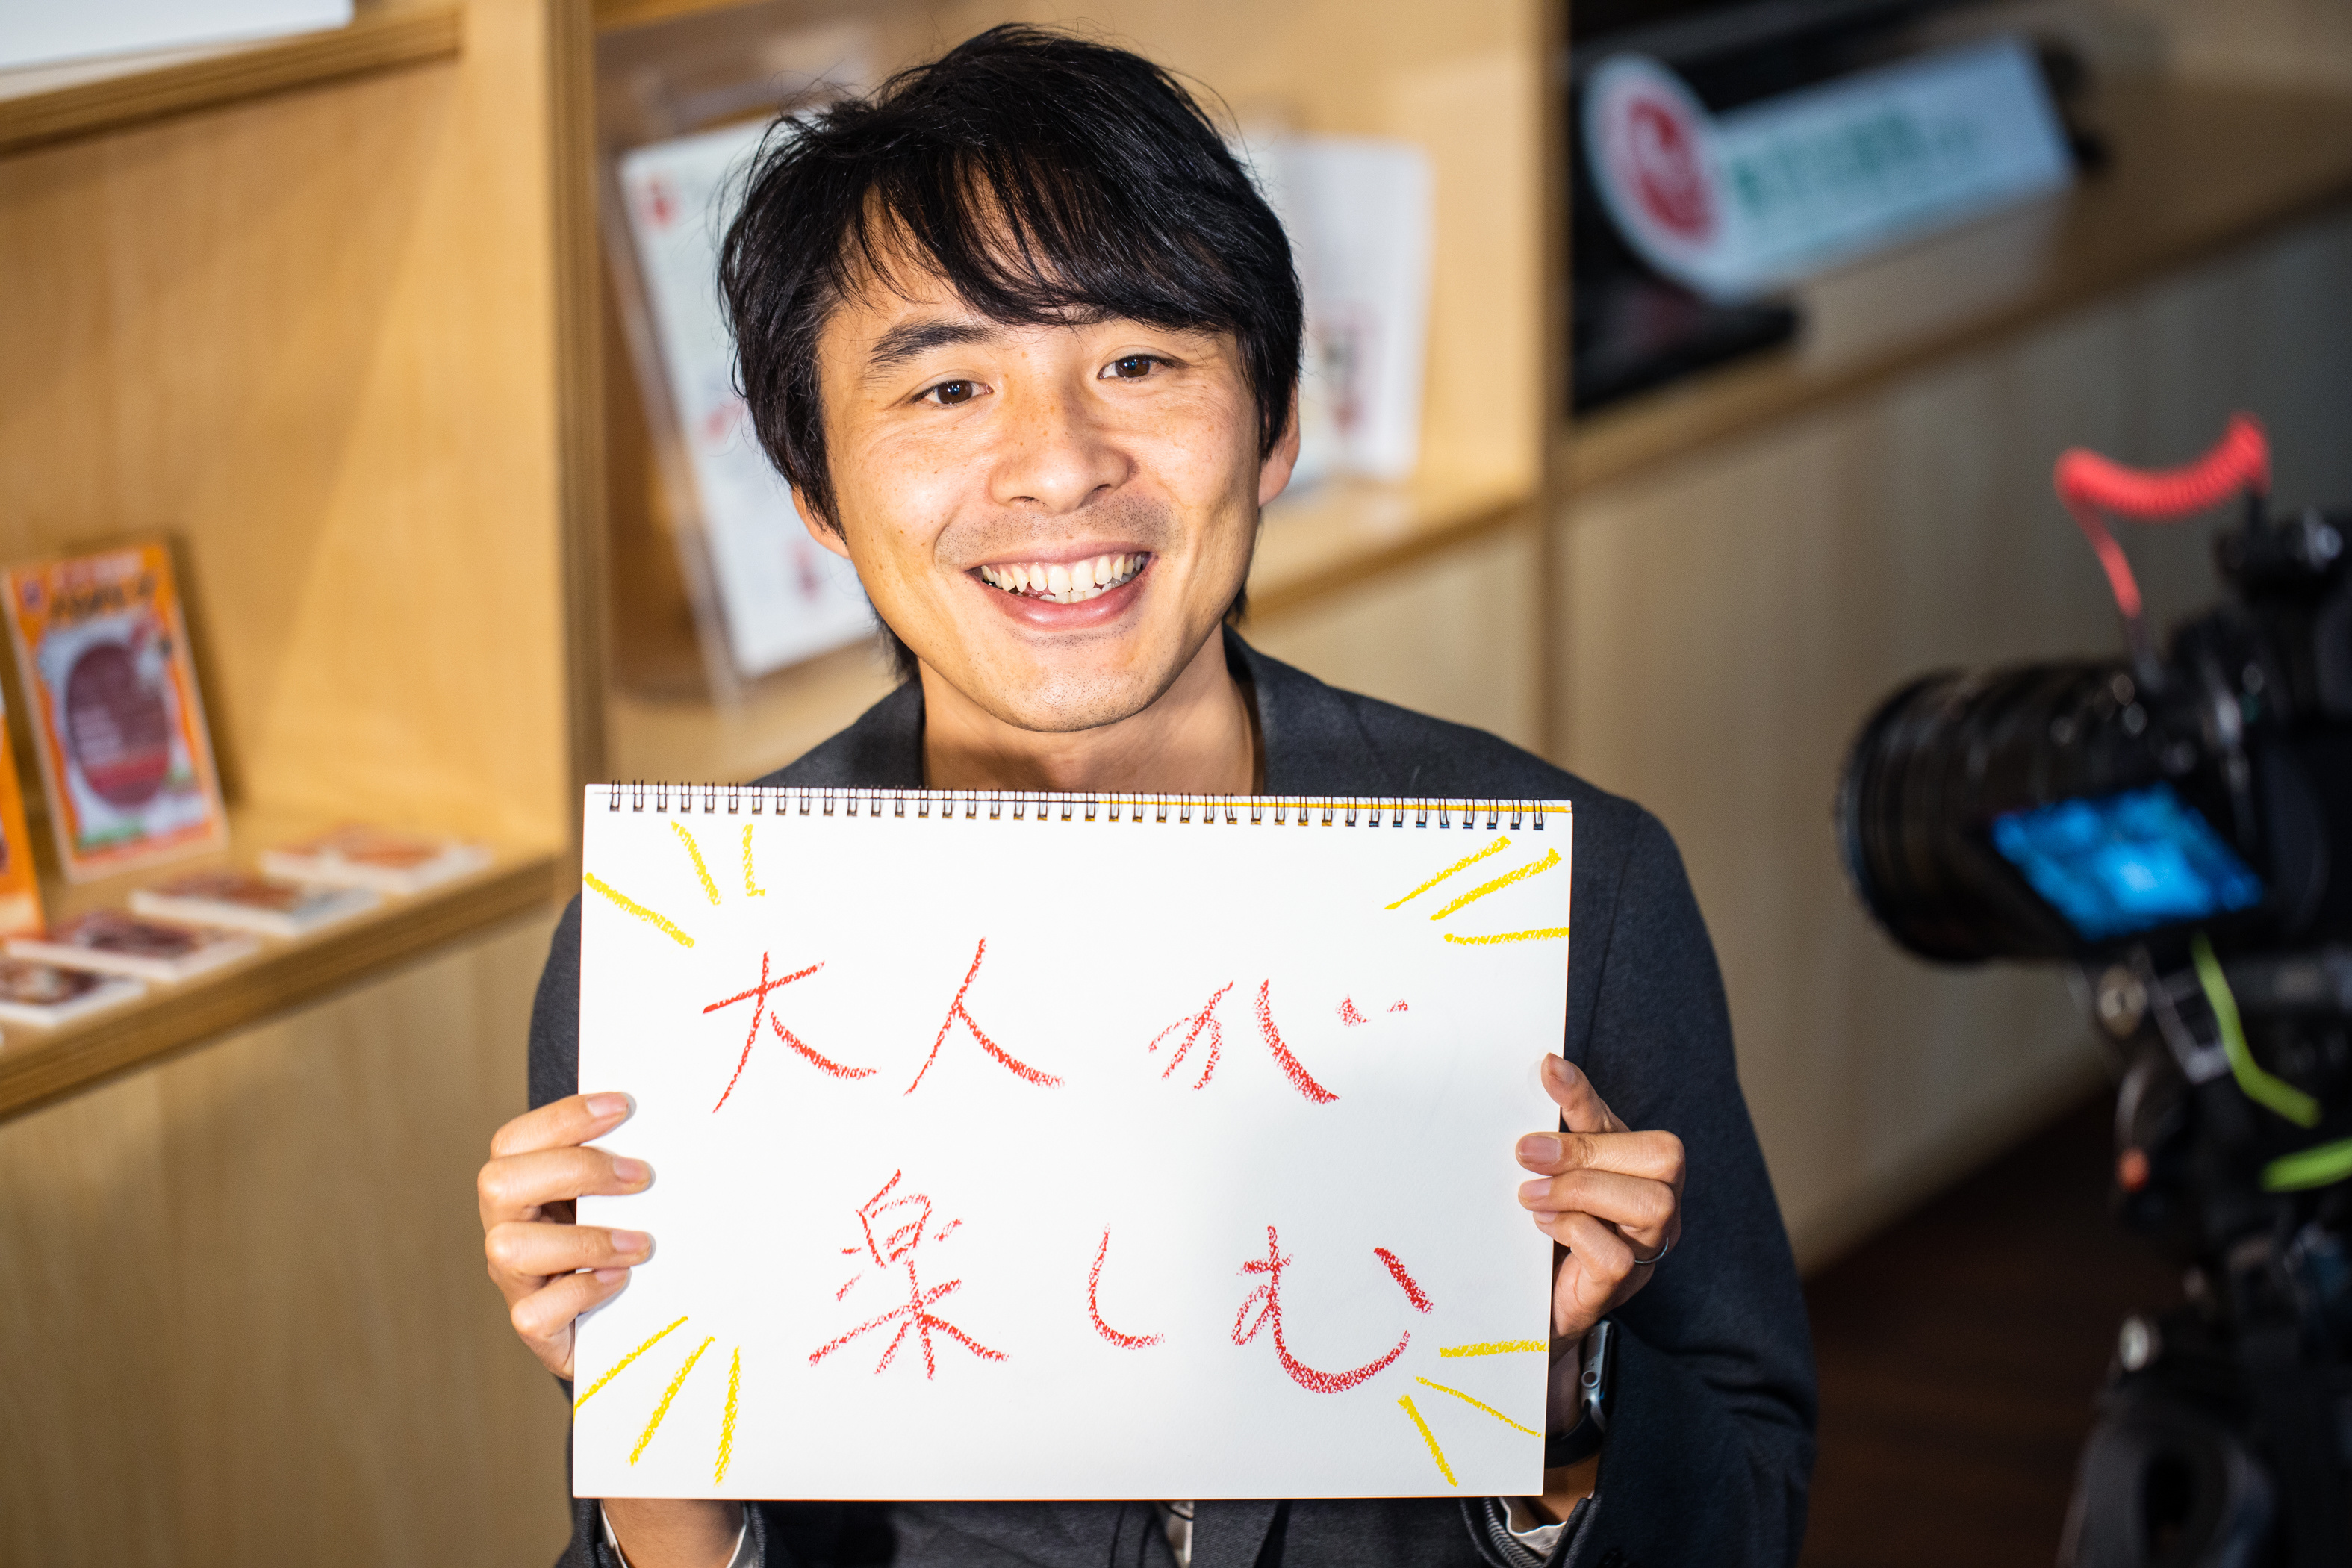 大人が
楽しむ